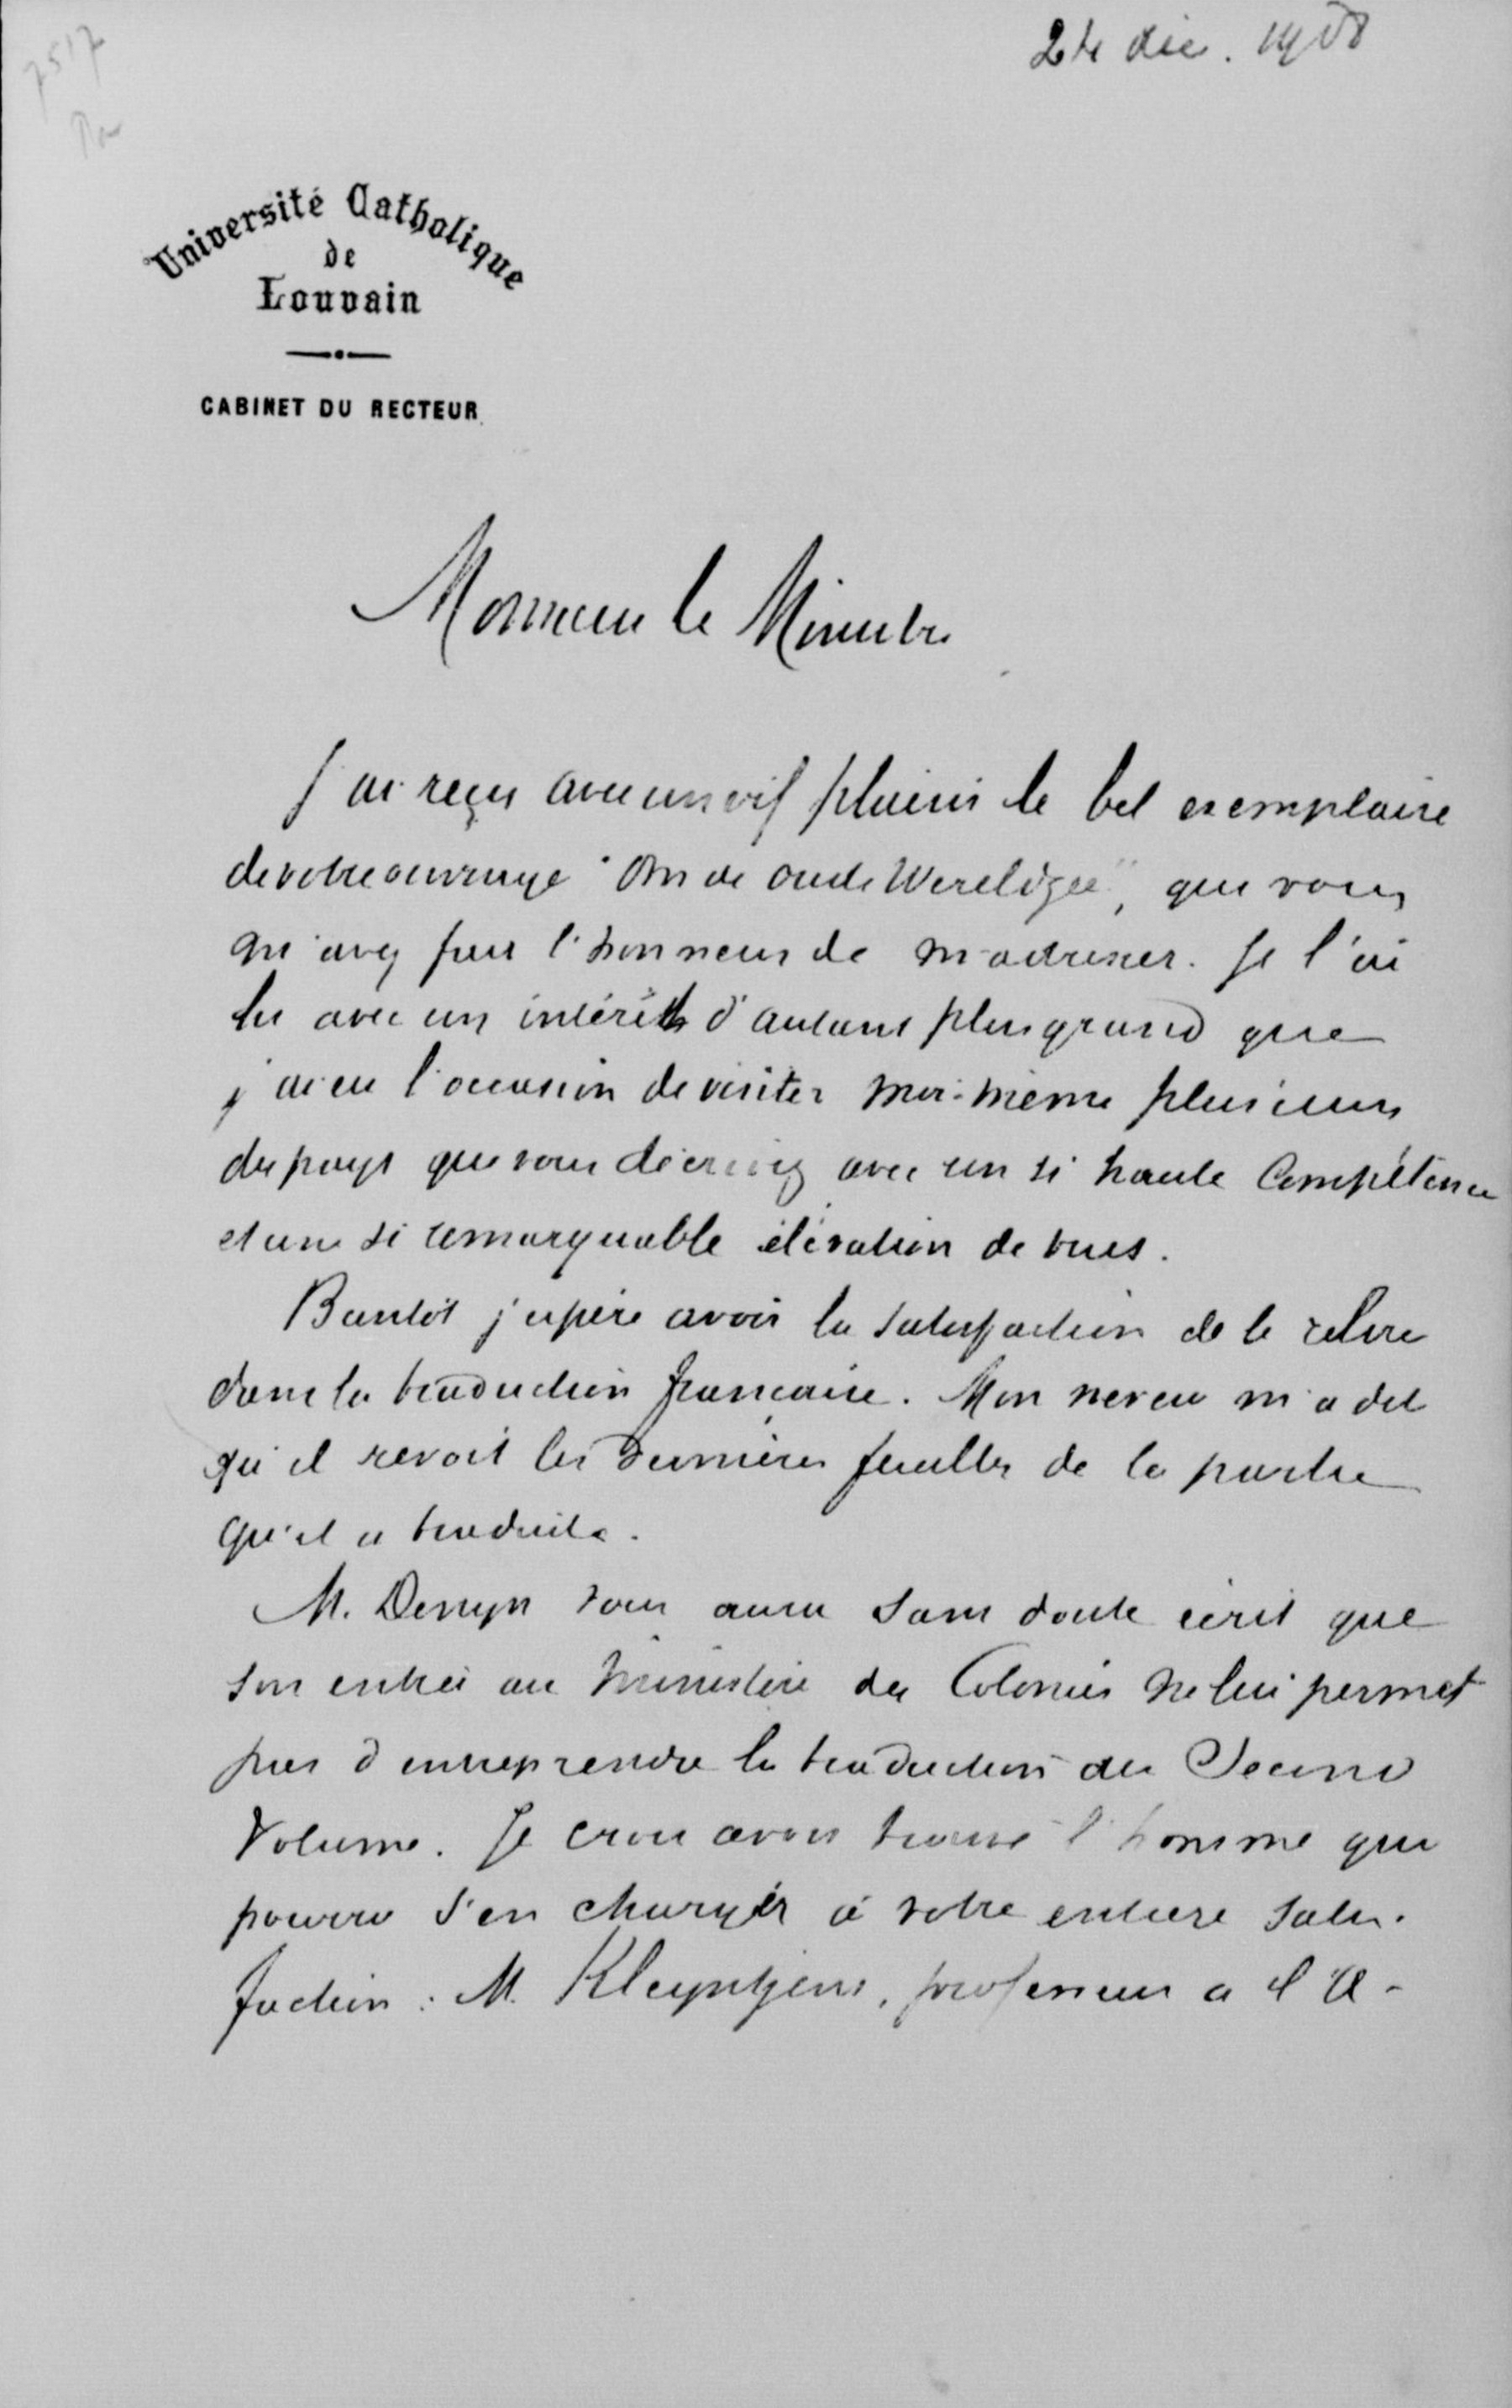 7517
24 dec. 1908
Université Catholique
de
Louvain
CABINET DU RECTEUR
Monsieur le Ministre
J'ai reçu avec un vif plaisir le bel exemplaire
de votre ouvrage "Om de oude Wereldzee", que vous
m'avez fait l'honneur de m'adresser. Je l'ai
lu avec un intérêt d'autant plus grand que
j'ai eu l'occasion de visiter moi-même plusieurs
des pays que vous décrivez avec un si haute compétence
et une si remarquable élévation de vues.
Bientôt j'espère avoir la satisfaction de le relire
dans la traduction française. Mon neveu m'a dit
qu'il revoit les dernières feuilles de la partie
qu'il a traduite.
M. Denyn vous aura sans doute écrit que
son entrée au Ministère des Colonies ne lui permet
pas d'entreprendre la traduction du Second
Volume. Je crois avoir trouvé l'homme qui
pourra s'en charger à votre entière satis-
faction : M. Kleyntjens, professeur a l'A-